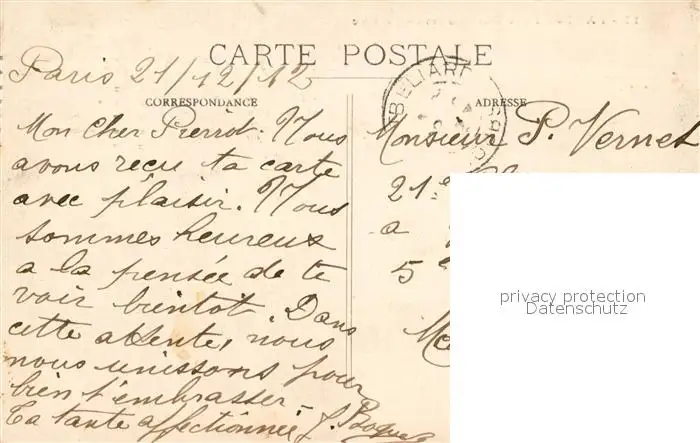 CARTE POSTALE
Paris 21/12/12
CORRESPONDANCE
Mon cher Pierrot. Nous
avons reçu ta carte
avec plaisir. Nous
sommes heureux
a la pensée de te
voir bientot. Dans
cette attente, nous
nous unissons pour
bien t'embrasser -
Ta tante affectionnée J.
BELIARD
ADRESSE
Monsieur P. Vernet
21e
a
5e
privacy protection
Datenschutz